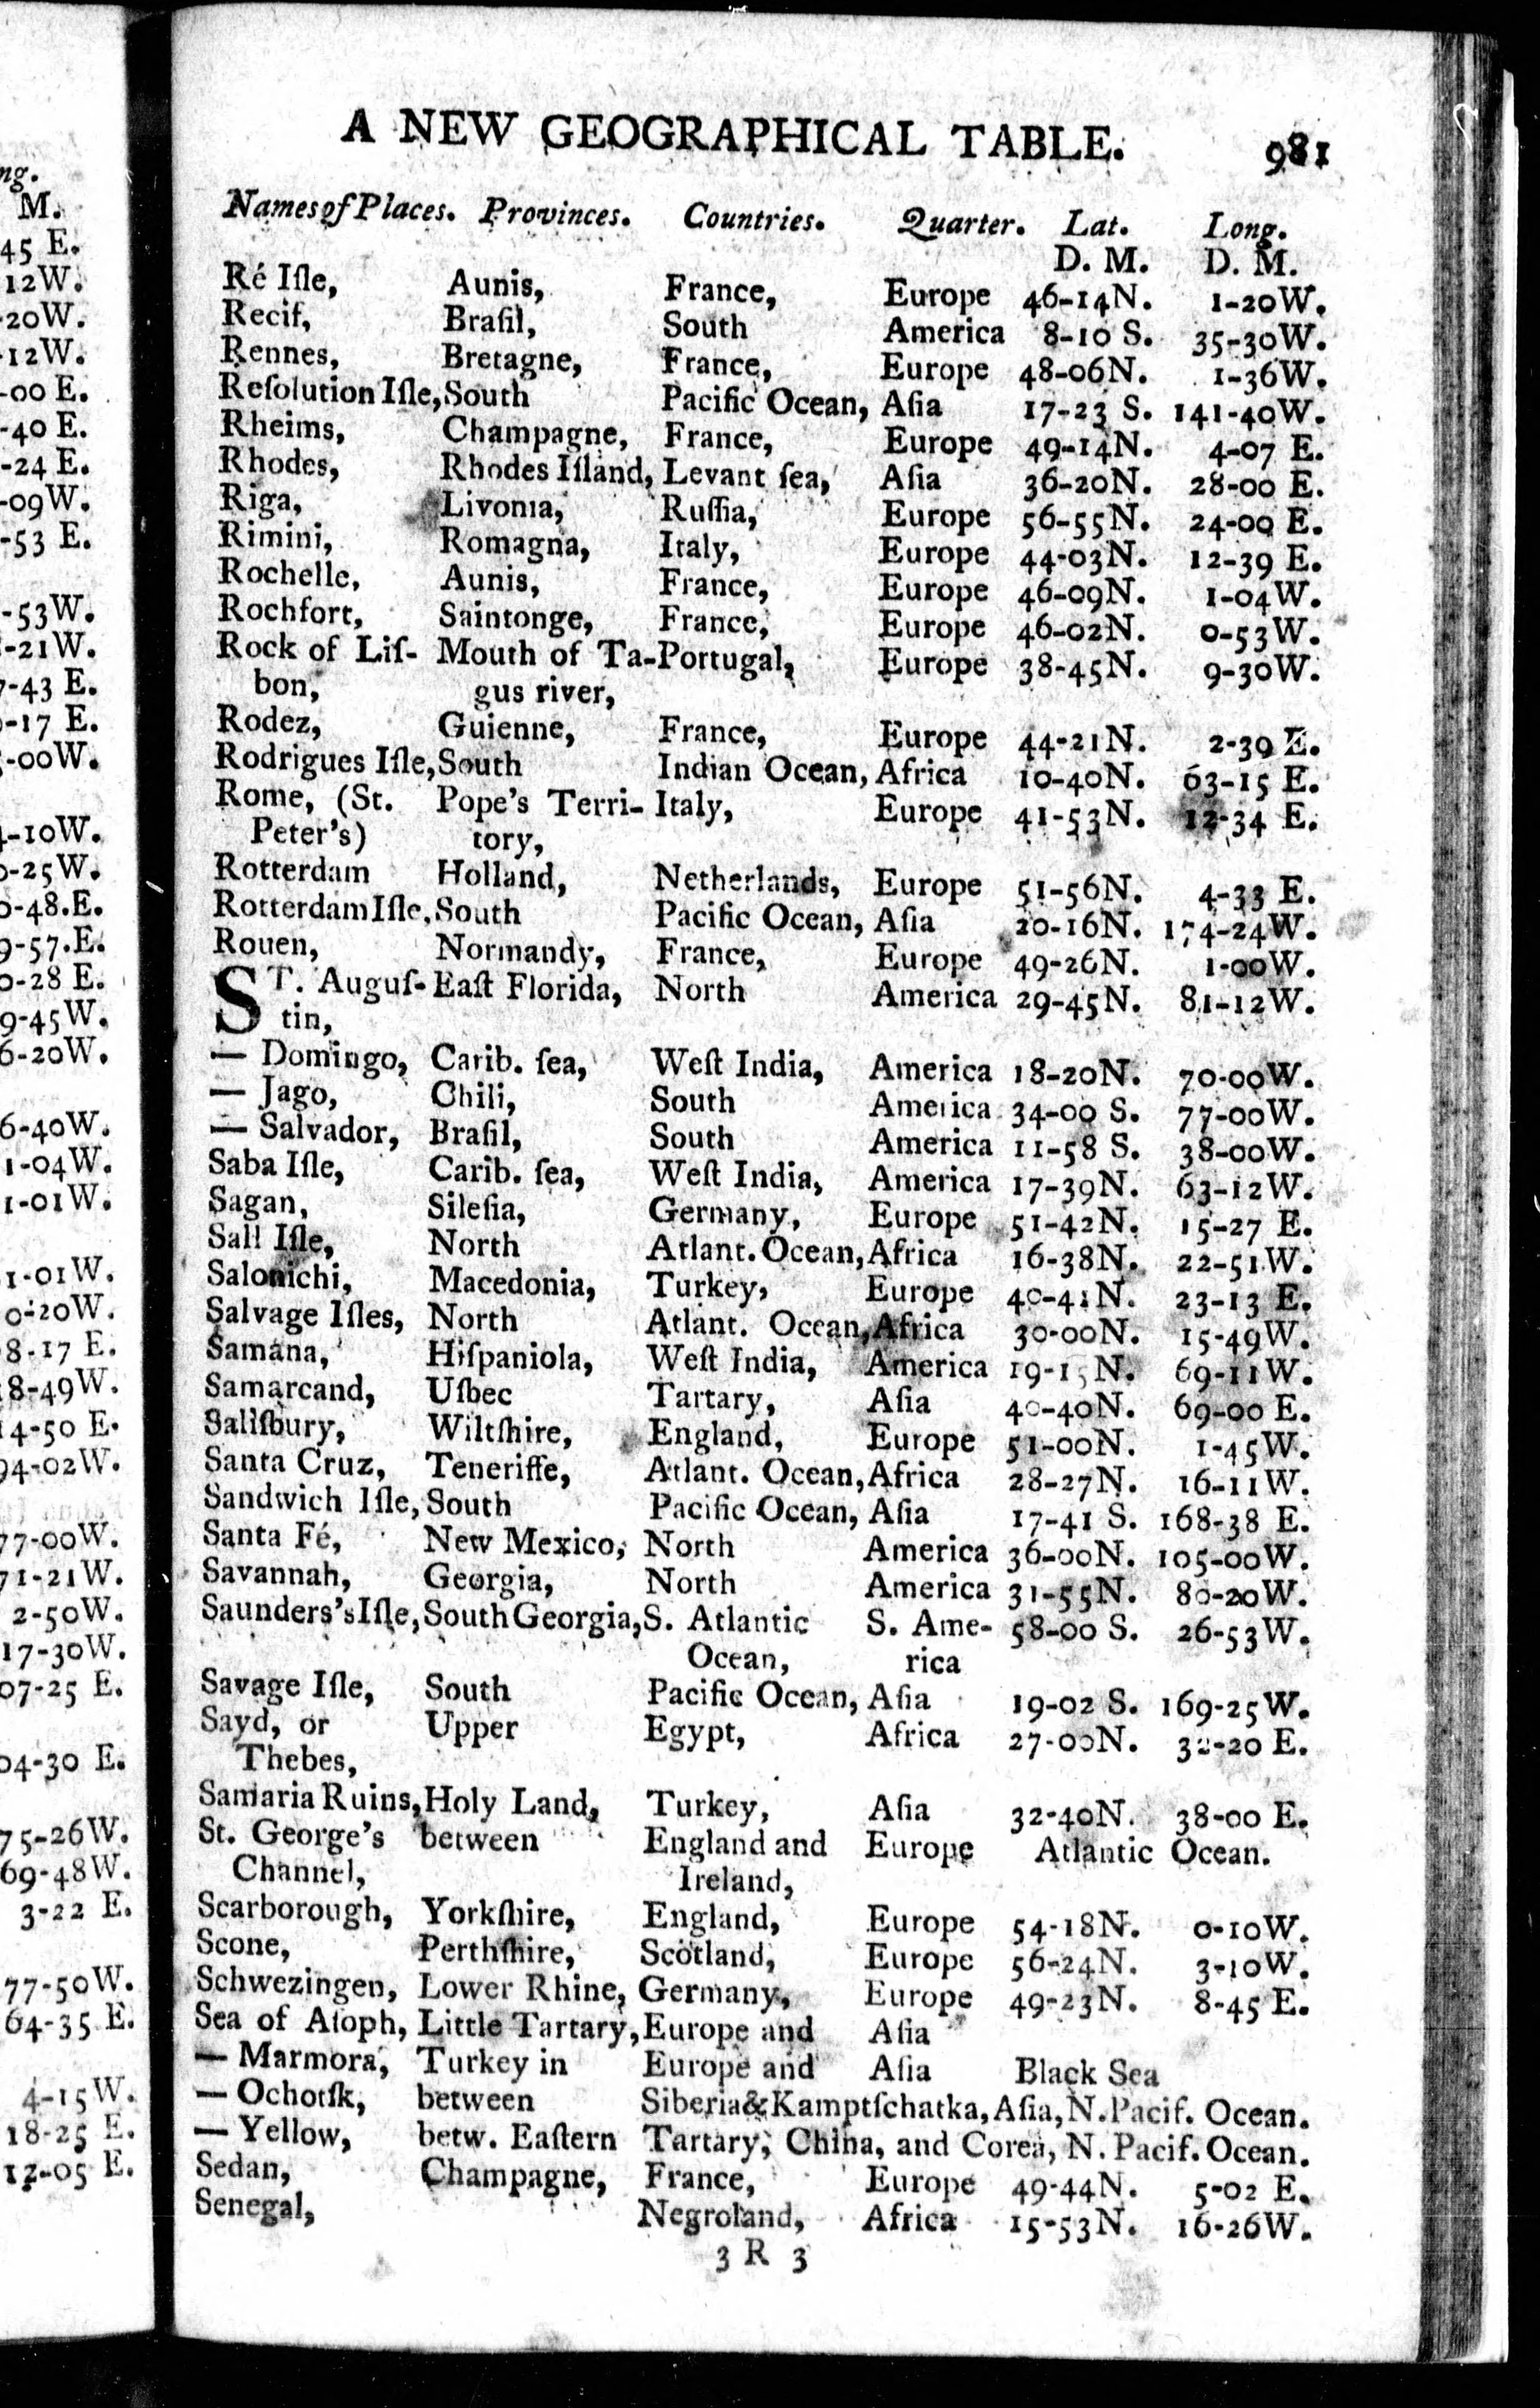 A NEW GEOGRAPHICAL TABLE. 981
Names of Places. Provinces. Countries. Quarter. Lat. Long.
D. M. D. M.
Ré Iſle, Aunis, France, Europe 46-14N. 1-20W.
Recif, Braſil, South America 8-10 S. 35-30W.
Rennes, Bretagne, France, Europe 48-06N. 1-36W.
Reſolution Iſle, South Pacific Ocean, Aſia 17-23 S. 141-40W.
Rheims, Champagne, France, Europe 49-14N. 4-07 E.
Rhodes, Rhodes Iſland, Levant ſea, Aſia 36-20N. 28-00 E.
Riga, Livonia, Ruſſia, Europe 56-55N. 24-00 E.
Rimini, Romagna, Italy, Europe 44-03N. 12-39 E.
Rochelle, Aunis, France, Europe 46-09N. 1-04W.
Rochfort, Saintonge, France, Europe 46-02N. 0-53W.
Rock of Liſ- Mouth of Ta- Portugal, Europe 38-45N. 9-30W.
bon, gus river,
Rodez, Guienne, France, Europe 44-21N. 2-39 E.
Rodrigues Iſle, South Indian Ocean, Africa 10-40N. 63-15 E.
Rome, (St. Pope's Terri- Italy, Europe 41-53N. 12-34 E.
Peter's) tory,
Rotterdam Holland, Netherlands, Europe 51-56N. 4-33 E.
Rotterdam Iſle, South Pacific Ocean, Aſia 20-16N. 174-24W.
Rouen, Normandy, France, Europe 49-26N. 1-00W.
ST. Auguſ- Eaſt Florida, North America 29-45N. 81-12W.
tin,
— Domingo, Carib. ſea, Weſt India, America 18-20N. 70-00W.
— Jago, Chili, South America 34-00 S. 77-00W.
— Salvador, Braſil, South America 11-58 S. 38-00W.
Saba Iſle, Carib. ſea, Weſt India, America 17-39N. 63-12W.
Sagan, Sileſia, Germany, Europe 51-42N. 15-27 E.
Sall Iſle, North Atlant. Ocean, Africa 16-38N. 22-51W.
Salonichi, Macedonia, Turkey, Europe 40-41N. 23-13 E.
Salvage Iſles, North Atlant. Ocean, Africa 30-00N. 15-49W.
Samana, Hiſpaniola, Weſt India, America 19-15N. 69-11W.
Samarcand, Uſbec Tartary, Aſia 40-40N. 69-00 E.
Saliſbury, Wiltſhire, England, Europe 51-00N. 1-45W.
Santa Cruz, Teneriffe, Atlant. Ocean, Africa 28-27N. 16-11W.
Sandwich Iſle, South Pacific Ocean, Aſia 17-41 S. 168-38 E.
Santa Fé, New Mexico, North America 36-00N. 105-00W.
Savannah, Georgia, North America 31-55N. 80-20W.
Saunders's Iſle, South Georgia, S. Atlantic S. Ame- 58-00 S. 26-53W.
Ocean, rica
Savage Iſle, South Pacific Ocean, Aſia 19-02 S. 169-25W.
Sayd, or Upper Egypt, Africa 27-00N. 32-20 E.
Thebes,
Samaria Ruins, Holy Land, Turkey, Aſia 32-40N. 38-00 E.
St. George's between England and Europe Atlantic Ocean.
Channel, Ireland,
Scarborough, Yorkſhire, England, Europe 54-18N. 0-10W.
Scone, Perthſhire, Scotland, Europe 56-24N. 3-10W.
Schwezingen, Lower Rhine, Germany, Europe 49-23N. 8-45 E.
Sea of Aſoph, Little Tartary, Europe and Aſia
— Marmora, Turkey in Europe and Aſia Black Sea
— Ochotſk, between Siberia & Kamptſchatka, Aſia, N. Pacif. Ocean.
— Yellow, betw. Eaſtern Tartary, China, and Corea, N. Pacif. Ocean.
Sedan, Champagne, France, Europe 49-44N. 5-02 E.
Senegal, Negroland, Africa 15-53N. 16-26W.
3 R 3